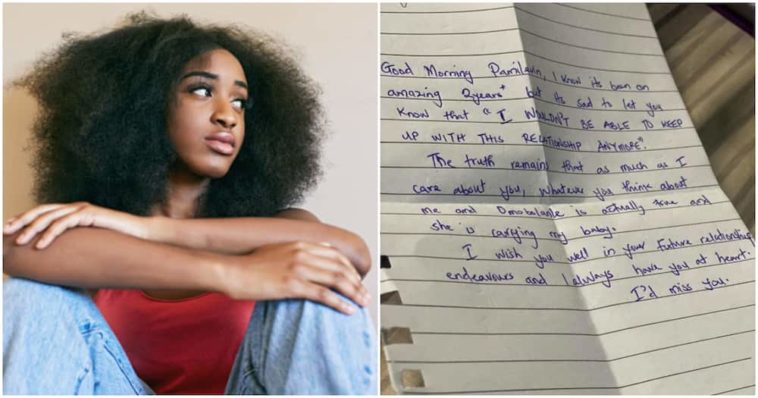 Good Morning Pamilayin, I know its been an
amazing 2years+ but its sad to let you
know that "I WOULDN'T BE ABLE TO KEEP
UP WITH THIS RELATIONSHIP ANYMORE".
The truth remains that as much as I
care about you, whatever you think about
me and Omobalanle is actually true and
she is carrying my baby.
I wish you well in your future relationship
endeavours and I always have you at heart.
I'd miss you.